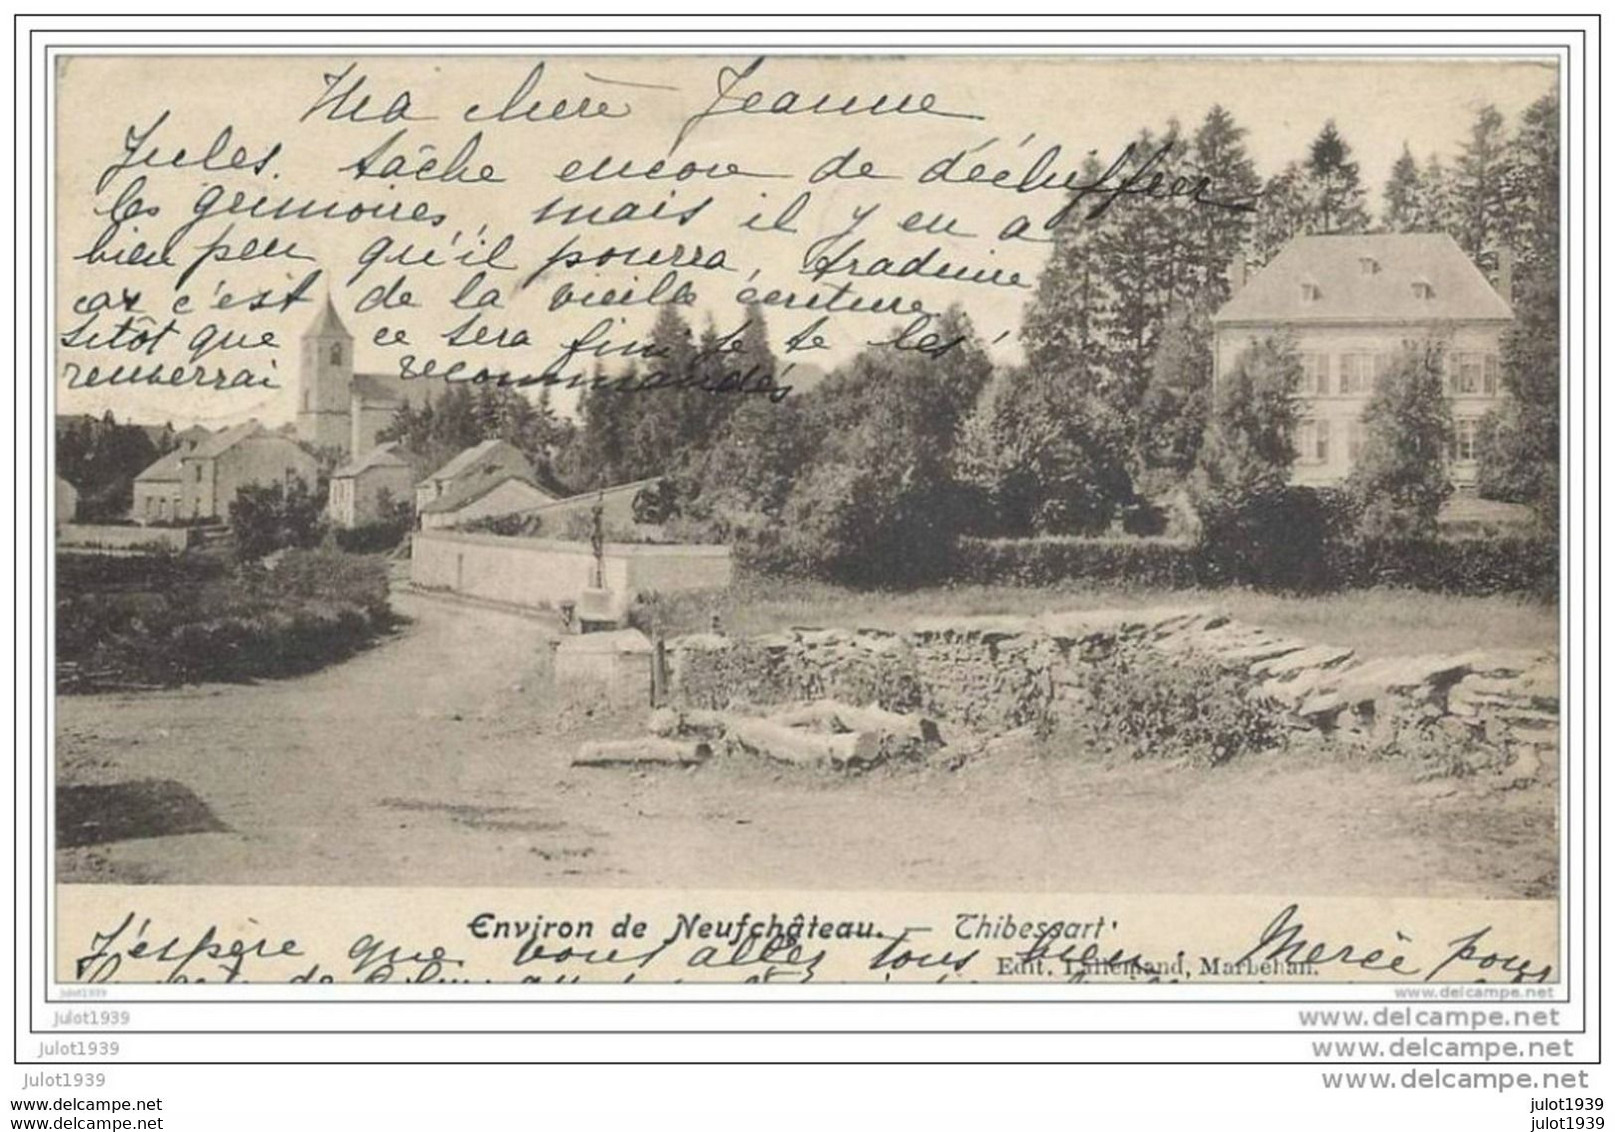 Ma chère Jeanne
Jules. tâche encore de déchiffrer
les grimoires, mais il y en a
bien peu qu'il pourra, traduire
car c'est de la vieille écriture
sitôt que ce sera fini je te les
renverrai recommandés
Environ de Neufchâteau. — Thibessart
J'espère que vous allez tous bien. Merci pour
Edit. Lallemand, Marbehan.
julot1939
www.delcampe.net
julot1939
www.delcampe.net
julot1939
www.delcampe.net
julot1939
www.delcampe.net
www.delcampe.net
julot1939
www.delcampe.net
julot1939